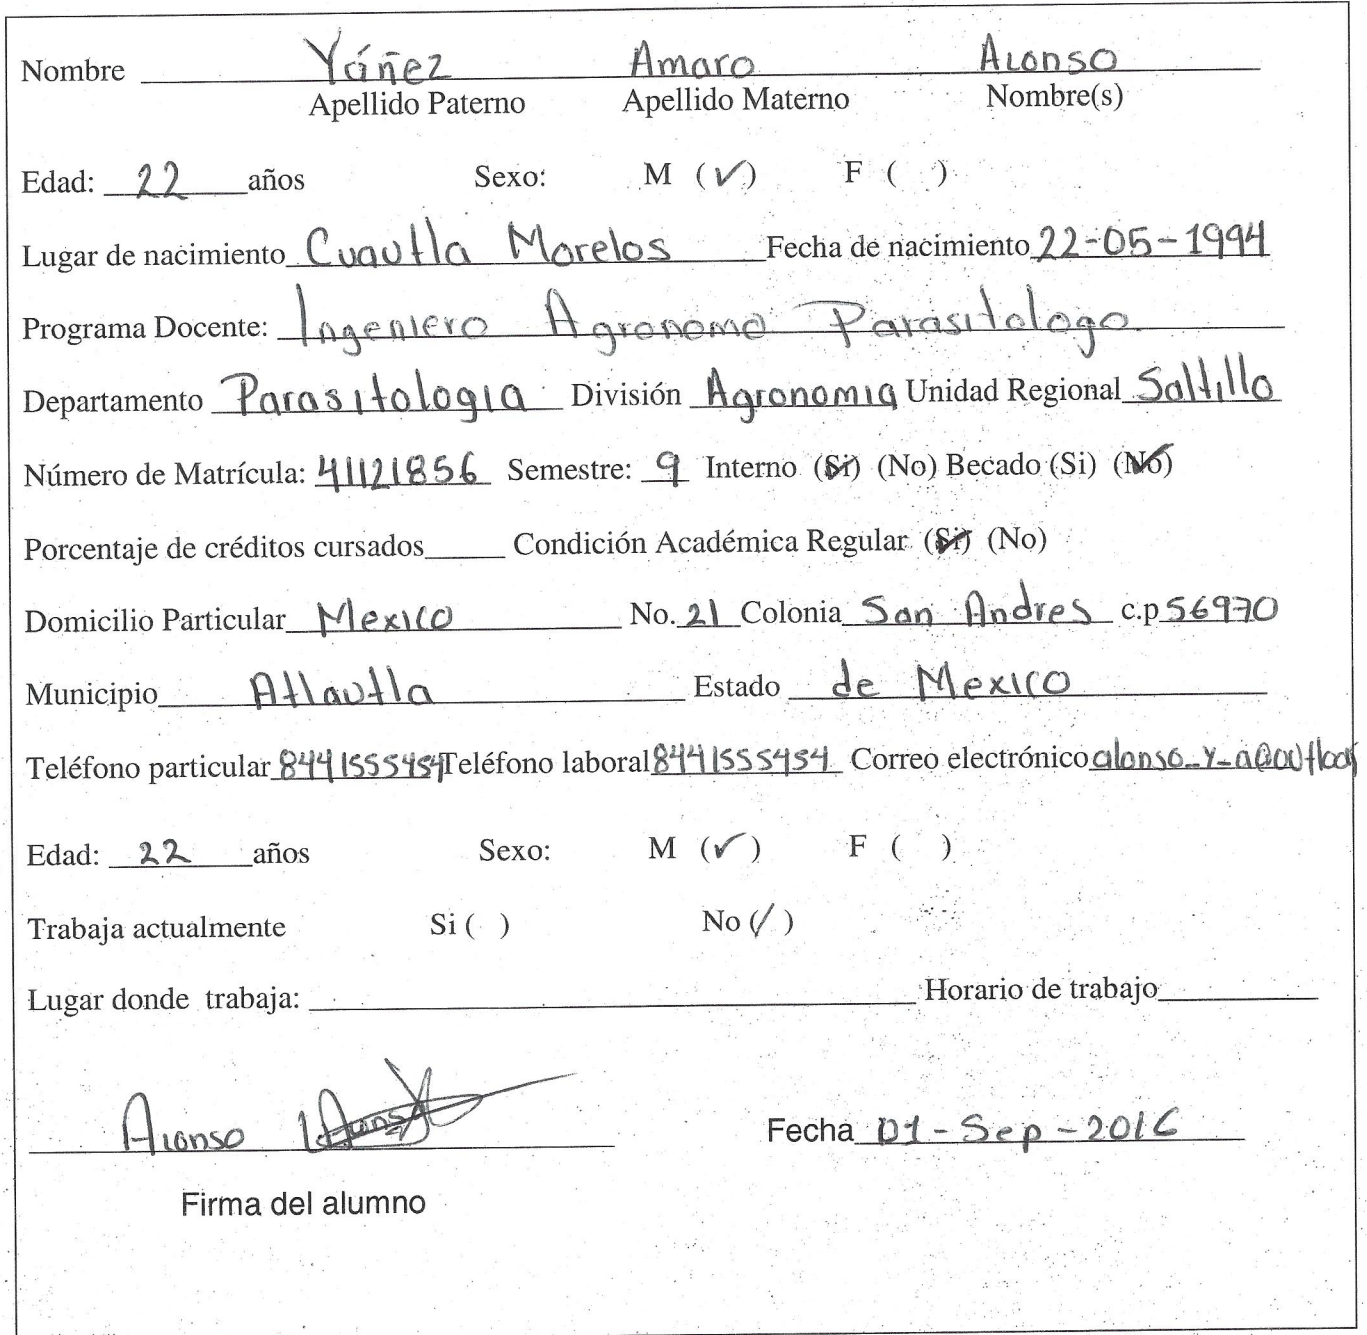 Nombre Yáñez Amaro Alonso
Apellido Paterno Apellido Materno Nombre(s)
Edad: 22 años Sexo: M (✓) F ( )
Lugar de nacimiento Cuautla Morelos Fecha de nacimiento 22-05-1994
Programa Docente: Ingeniero Agronomo Parasitologo
Departamento Parasitologia División Agronomia Unidad Regional Saltillo
Número de Matrícula: 41121856 Semestre: 9 Interno (Si) (No) Becado (Si) (No)
Porcentaje de créditos cursados_____ Condición Académica Regular (Si) (No)
Domicilio Particular Mexico No. 21 Colonia San Andres c.p 56970
Municipio Atlautla Estado de Mexico
Teléfono particular 8441555454 Teléfono laboral 8441555454 Correo electrónico
Edad: 22 años Sexo: M (✓) F ( )
Trabaja actualmente Si ( ) No (/ )
Lugar donde trabaja: Horario de trabajo
Alonso
Fecha 01-Sep-2016
Firma del alumno